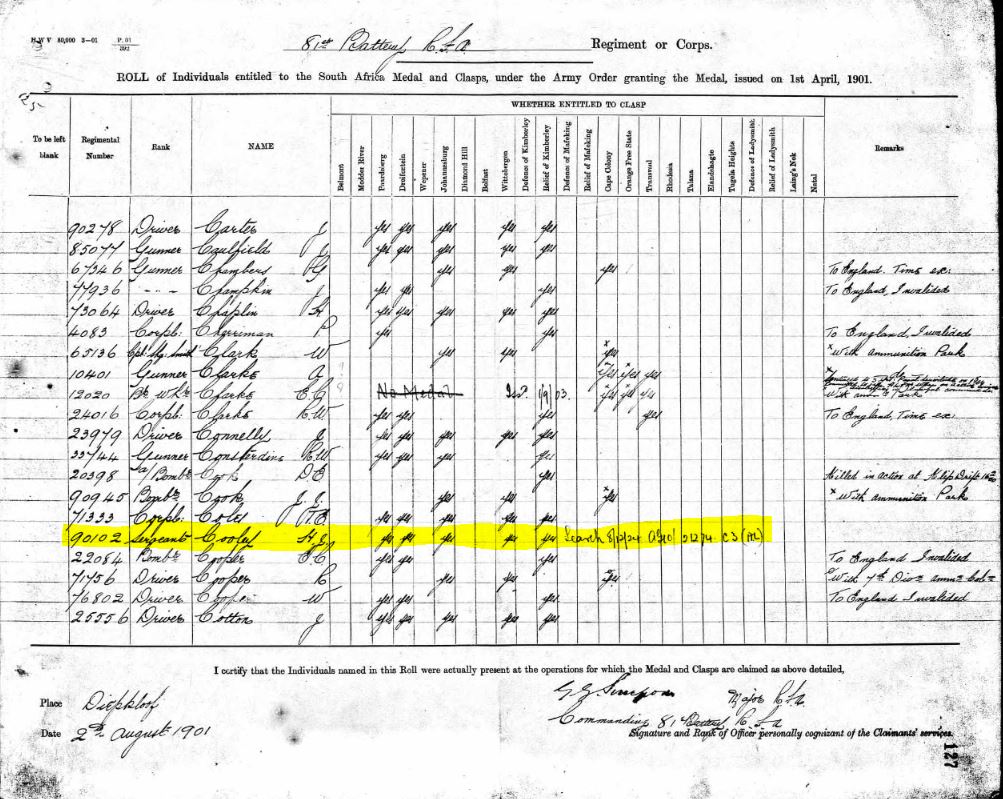 H W V 80,000 3—01 P. 01
81st Battery R.F.A. Regiment or Corps.
ROLL of Individuals entitled to the South Africa Medal and Clasps, under the Army Order granting the Medal, issued on 1st April, 1901.
WHETHER ENTITLED TO CLASP
To be left blank Regimental Number Rank NAME Belmont Modder River Paardeberg Dreifontein Wepener Johannesburg Diamond Hill Belfast Wittebergen Defence of Kimberley Relief of Kimberley Defence of Mafeking Relief of Mafeking Cape Colony Orange Free State Transvaal Rhodesia Talana Elandslaagte Tugela Heights Defence of Ladysmith Relief of Ladysmith Laing's Nek Natal Remarks
90278 Driver Carter J yes yes yes yes yes
85077 Gunner Caulfield J yes yes yes yes yes
67346 Gunner Chambers yes yes yes To England. Time ex:
77936 " Champkin J yes yes yes To England, Invalided
73064 Driver Chaplin yes yes yes yes yes
4083 Corpl: Cherriman P yes yes To England, Invalided
65136 Clark W yes yes x yes x With ammunition Park
10401 Gunner Clarke A yes yes yes
12020 Clarke E.G No Medal yes yes yes
24016 Corpl: Clarke yes yes yes yes To England, Time ex:
23979 Driver Connelly J yes yes yes yes yes
33744 Gunner Consterdine R.W yes yes yes yes
20398 a/Bombr Cook yes Killed in action at Klip Drift
90945 Bombr Cook J.J. yes yes x yes x With ammunition Park
71333 Corpl: Coles yes yes yes yes yes
90102 Sergeant H.J yes yes yes yes yes Search
22084 Bombr Cooper yes yes yes To England Invalided
71756 Driver Cooper R yes yes yes With 7th Divn ammn Coln
76802 Driver Cooper W yes yes yes To England Invalided
25556 Driver Cotton J yes yes yes yes yes
I certify that the Individuals named in this Roll were actually present at the operations for which the Medal and Clasps are claimed as above detailed,
Place Diepkloof
Major R.F.A.
Commanding 81 Battery R.F.A
Date 2nd August 1901
Signature and Rank of Officer personally cognizant of the Claimants' services.
127